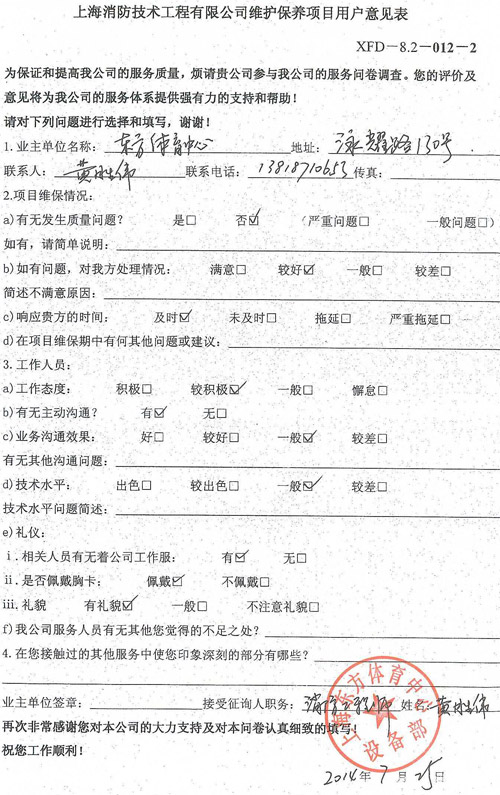 上海消防技术工程有限公司维护保养项目用户意见表
XFD－8.2－012－2
为保证和提高我公司的服务质量，烦请贵公司参与我公司的服务问卷调查。您的评价及
意见将为我公司的服务体系提供强有力的支持和帮助！
请对下列问题进行选择和填写，谢谢！
1.业主单位名称：东方体育中心 地址：泳耀路130号
联系人：黄 伟 联系电话：13818710653 传真：
2.项目维保情况：
a)有无发生质量问题？ 是□ 否☑ （严重问题□ 一般问题□）
如有，请简单说明：
b)如有问题，对我方处理情况： 满意□ 较好☑ 一般□ 较差□
简述不满意原因：
c)响应贵方的时间： 及时☑ 未及时□ 拖延□ 严重拖延□
d)在项目维保期中有何其他问题或建议：
3.工作人员：
a)工作态度： 积极□ 较积极☑ 一般□ 懈怠□
b)有无主动沟通？ 有☑ 无□
c)业务沟通效果： 好□ 较好□ 一般☑ 较差□
有无其他沟通问题：
d)技术水平： 出色□ 较出色□ 一般☑ 较差□
技术水平问题简述：
e)礼仪：
i.相关人员有无着公司工作服： 有☑ 无□
ii.是否佩戴胸卡： 佩戴☑ 不佩戴□
iii.礼貌 有礼貌☑ 一般□ 不注意礼貌□
f)我公司服务人员有无其他您觉得的不足之处？
4.在您接触过的其他服务中使您印象深刻的部分有哪些？
上海东方体育中心
设备部
业主单位签章： 接受征询人职务：消防工程师 姓名：黄 伟
再次非常感谢您对本公司的大力支持及对本问卷认真细致的填写！
祝您工作顺利！
2014年7月25日